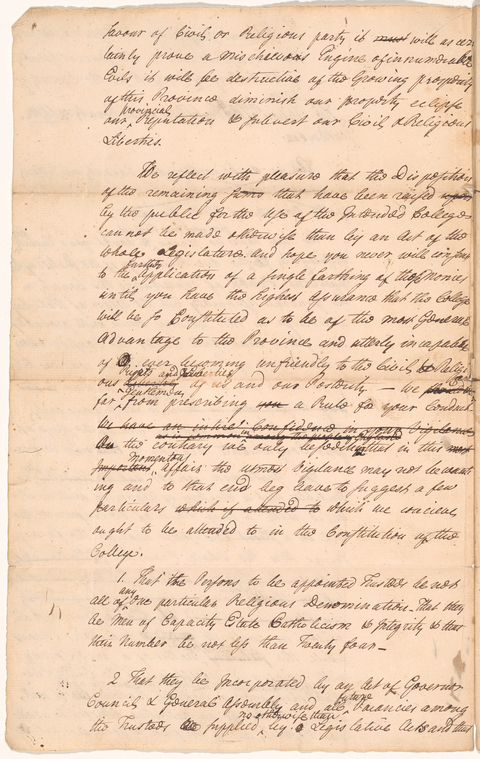 favour of Civil or Religious party it must will as cer
tainly prove a mischievous Engine of innumerable
Evils it will be destructive of the Growing prosperity
of this Province diminish our property eclipse
our provincial Reputation & subvert our Civil & Religious
Liberties.
We reflect with pleasure that the Disposition
of the remaining sums that have been raised
by the public for the Use of the Intended College
cannot be made otherwise than by an Act of the
whole Legislature and hope you never will consent
to the further application of a single farthing of these Monies
until you have the highest assurance that the College
will be so Constituted as to be of the most General
Advantage to the Province and utterly incapable
of ever becoming unfriendly to the Civil or Religi
ous Rights and Liberties of us and our Posterity – We
far Gentlemen from prescribing you a Rule for your Conduct
We have an entire Confidence in your Vigilance
On the contrary we only that in this most
important momentous affair the utmost Vigilance may not be want
ing and to that end beg leave to suggest a few
particulars which if attended to which we conceive
ought to be attended to in the Constitution of the
College.
1. That the Persons to be appointed Trustees be not
all of any one particular Religious Denomination – That they
be Men of Capacity Estate Catholicism & Integrity & that
their Number be not less than Twenty four –
2 That they be Incorporated by an Act of Governor
Council & General Assembly and all future Vacancies among
the Trustees be supplied no otherwise than by Legislative Acts and that